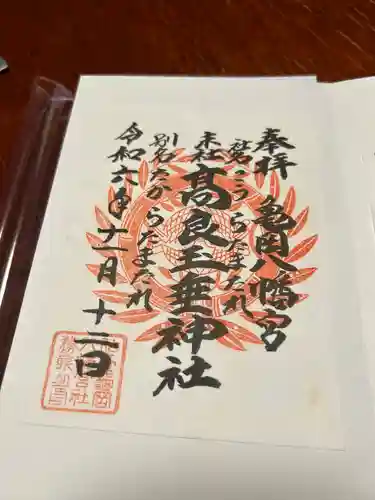 奉拝 亀岡八幡宮
社名 こうらたまたれ
末社 高良玉垂神社
別名 たからたまたれ
令和六年十一月十三日